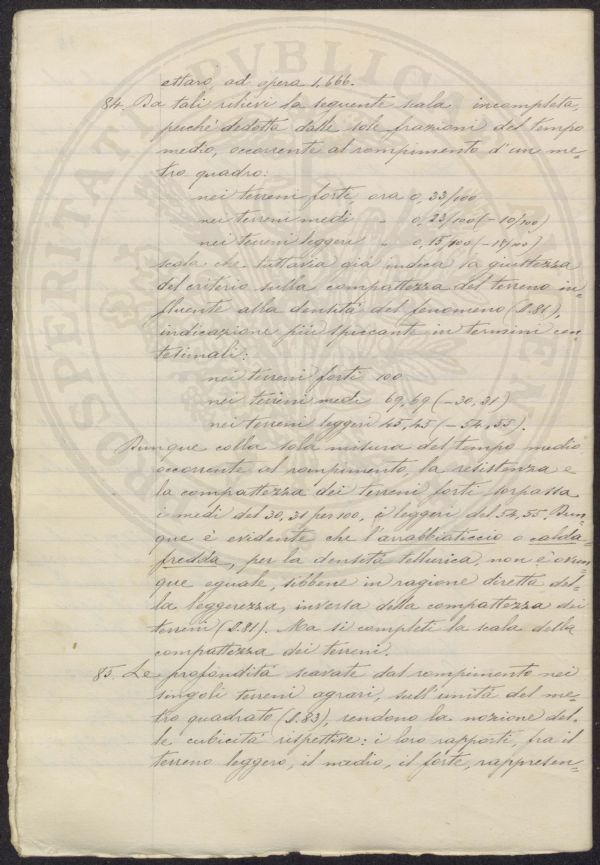 ettaro, ad opera 1,666.
84. Da tali rilievi la seguente scala incompleta,
perché dedotta dalle sole frazioni del tempo
medio, occorrente al rompimento d'un me=
tro quadro:
nei terreni forti, ora 0,33/100
nei terreni medi " 0,23/100 (-10/100)
nei terreni leggeri " 0,15/100 (-18/100)
scala che tuttavia già indica la giustezza
del criterio sulla compattezza del terreno in=
fluente alla densità del fenomeno (§.81),
indicazione più spiccante in termini cen=
tesimali:
nei terreni forti 100
nei terreni medi 69,69 (-30,31)
nei terreni leggeri 45,45 (-54,55).
Dunque colla sola misura del tempo medio
occorrente al rompimento, la resistenza e
la compattezza dei terreni forti sorpassa
i medi del 30,31 per 100, i leggeri del 54,55. Dun=
que è evidente che l'arrabbiaticcio o calda=
fredda, per la densità tellurica, non è ovun=
que eguale, sibbene in ragione diretta del=
la leggerezza, inversa della compattezza dei
terreni (§.81). Ma si completi la scala della
compattezza dei terreni.
85. Le profondità scavate dal rompimento nei
singoli terreni agrari, sull'unità del me=
tro quadrato (§.83), rendono la nozione del=
le cubicità rispettive: i loro rapporti, fra il
terreno leggero, il medio, il forte, rappresen=
PROSPERITATI PVBLICAE